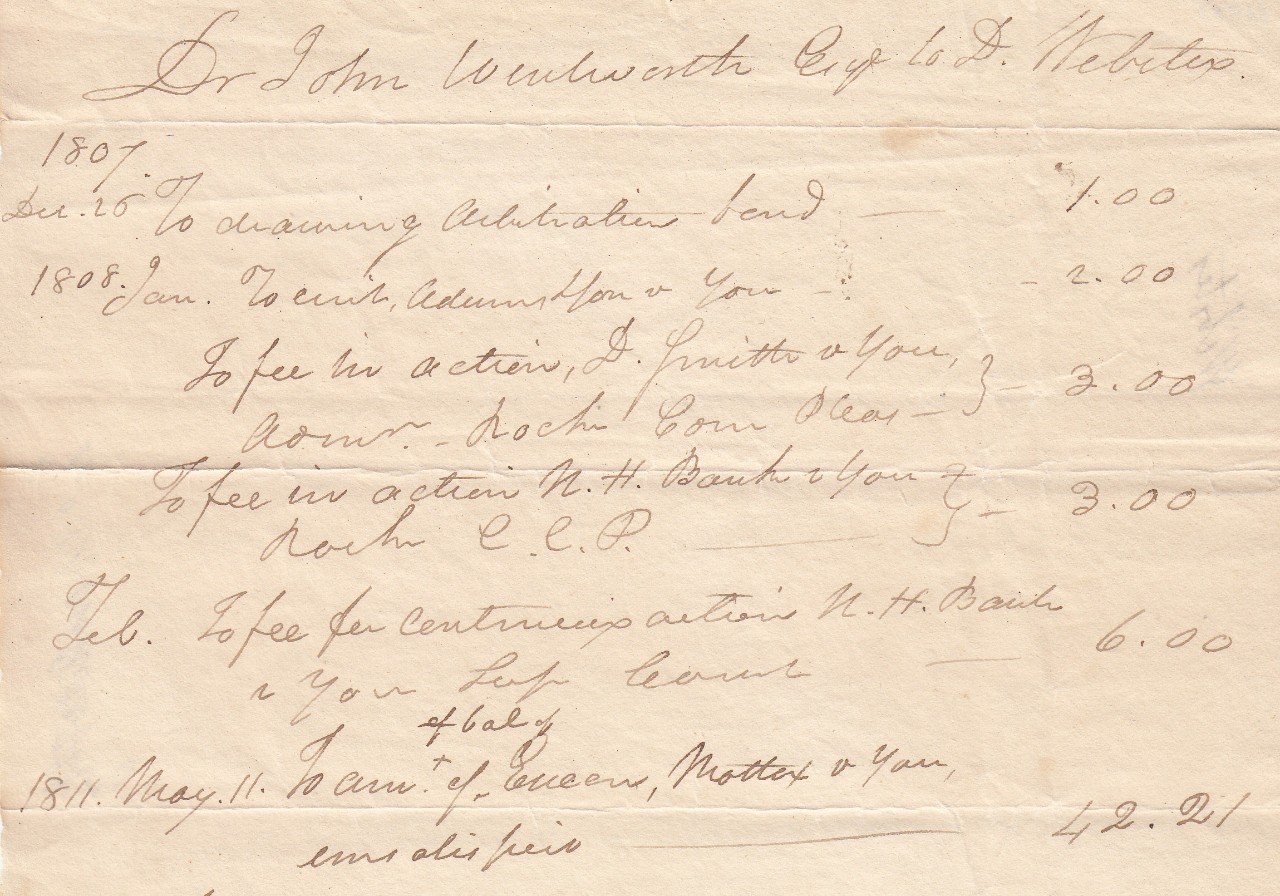 Dr John Wentworth Esqr to D. Webster.
1807.
Dec. 26 To drawing arbitration bond — 1.00
1808. Jan. To writ, Adams v You — - 2.00
To fee in action, D. Smith v You,
Admr. - Rockm Com Pleas — } – 3.00
To fee in action N. H. Bank v You
Rockm C. C. P. — } – 3.00
Feb. To fee for continuing action N. H. Bank
v You Sup Court — 6.00
& bal of
1811. May. 11. To amt. of Execon, v You,
— 42.21